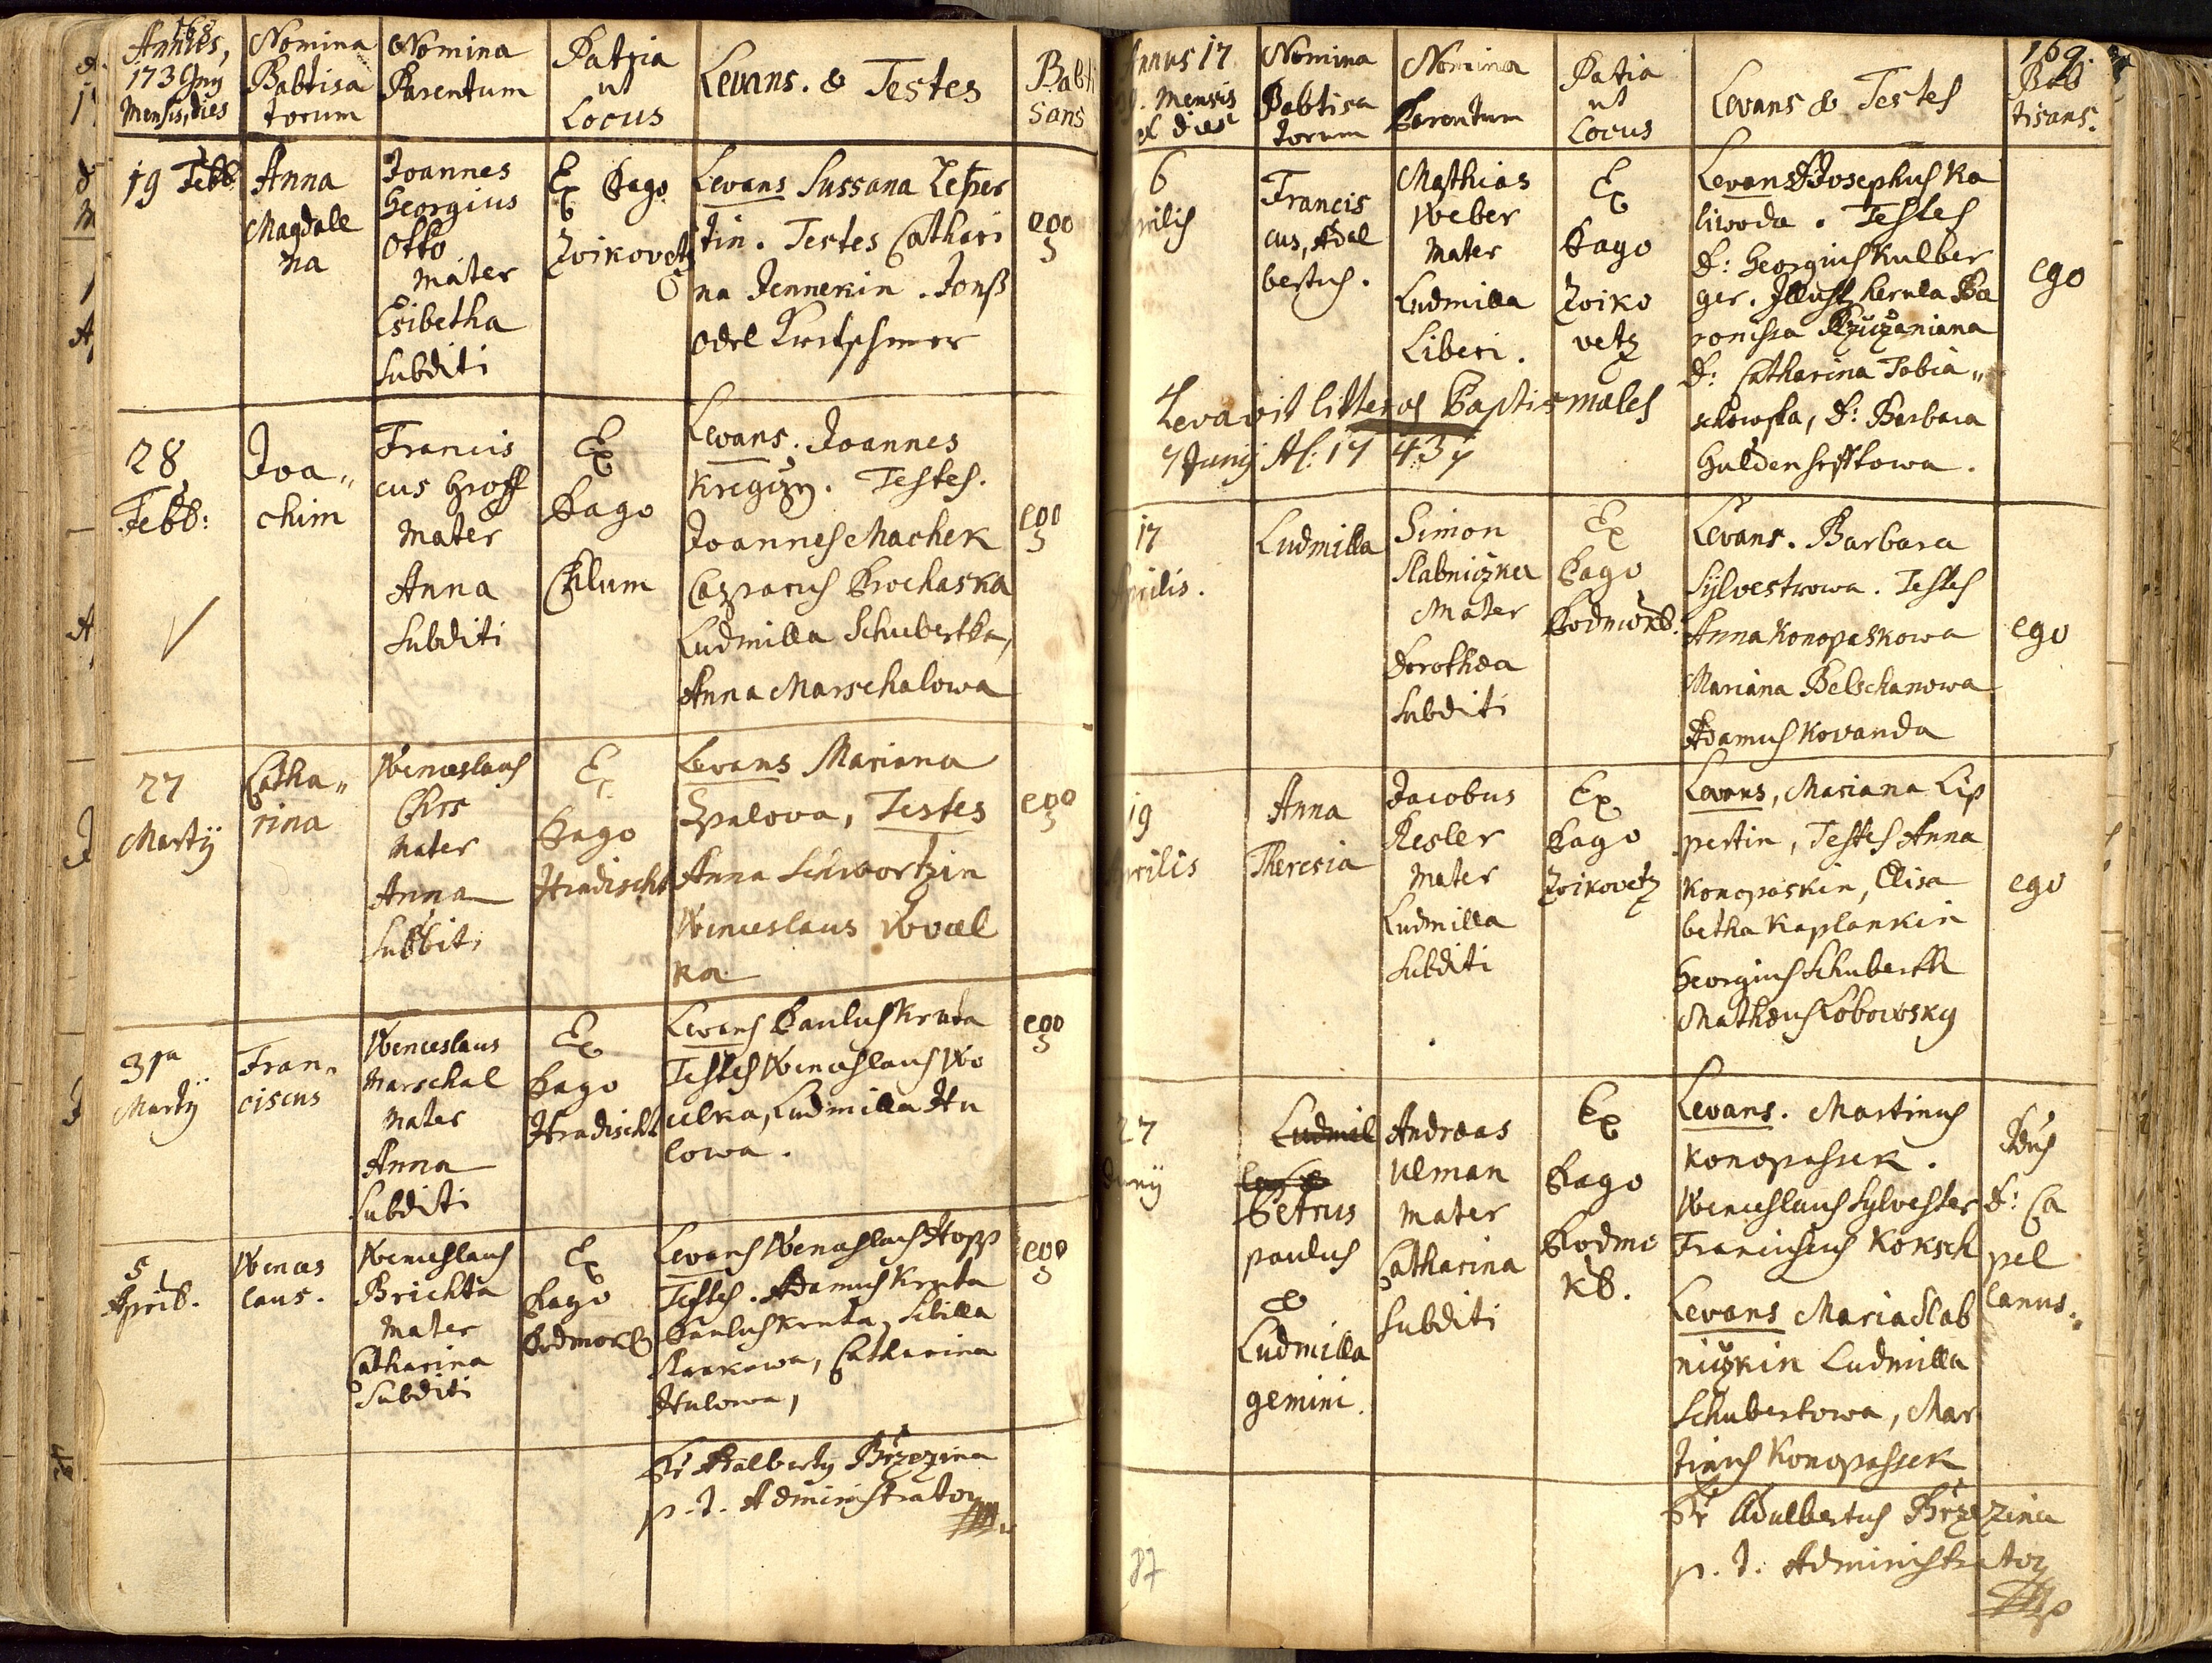 168
Nomina
Babtisa
torum
Nomina
Parentum
Patria
ut
Locus
Levans. & Testes
Babti
sans
Mensis, dies
19 Febb
Anna
Magdale
na
Joannes
Georgius
Otto
Mater
Subditi
Ex Pago
Zvikovetz
Levans Sussana
tin. Testes Cathari
na Jennekin.
ego
28
Febb:
Joa„
chim
Francis
cus Groff
Mater
Anna
Subditi
Ex
Pago
Chlum
Levans. Joannes
Testes.
Joannes Machek
Casparus Prochaska
Ludmilla Schubertka,
Anna Marschalowa
ego
27
Martij
Catha„
rina
Wenceslaus
Mater
Anna
Ex
Pago
Hradischt
Levans Mariana
Testes
Anna Schwortzin
Wenceslaus Wocel
ka
ego
31a
Martij
Fran„
ciscus
Wenceslaus
Marschal
Mater
Anna
Subditi
Ex
Pago
Hradischt
Levans Paulus Kruta
Testes Wenceslaus Wo
celka, Ludmilla Hu
lowa.
ego
5
Aprib.
Wences
laus.
Wenceslaus
Brichta
Mater
Catharina
Subditi
Ex
Pago
Podmokl
Levans Wenceslaus Hopp
Testes. Adamus Kruta
Paulus Kruta, Sibilla
Catharina
Hulowa,
Pr Adalberty Brzezina
p. t. Administrator
169.
Annus 17
Mensis
et dies
Nomina
Pabtisa
torum
Nomina
Parentum
Patia
ut
Locus
Levans & Testes
Bab
tisans.
6
rilis
Francis
cus, Adal
bertus.
Mathias
Weber
Mater
Ludmilla
Liberi.
Ex
Pago
Zviko
vetz
Levans D Josephus Ka
liwoda. Testes
D: Georgius Kulber
ger.
ronissa
D: Catharina Tobia„
schowska, D: Barbara
ego
Levavit litteras Baptismales
7 Junij A: 1743
17
Ludmilla
Simon
Slabniczka
Mater
Dorothea
Subditi
Ex
Pago
Podmokb.
Levans. Barbara
Sylvestrowa. Testes
Anna Konopaskowa
Mariana Belschanowa
Adamus Kovanda
ego
19
rilis
Anna
Theresia
Jacobus
Resler
Mater
Ludmilla
Subditi
Ex
Pago
Zvikovetz
Levans, Mariana Lip
pertin, Testes Anna
Konopaskin, Elisa
betha Kaplankin
Georgius Schuberth
Matheus Lobowsky
ego
27
unij
Ludmil
Petrus
paulus
&
Ludmilla
gemini.
Andreas
Ulman
Mater
Catharina
Subditi
Ex
Pago
Podmo
kb.
Levans. Martinus
Konopassek.
Wenceslaus Sylvester
Franciscus Koksch
Levans Maria Slab
niczkin Ludmilla
Schubertowa, Mar
tinus Konopassek
D: Ca
pel
lanus.
Pr Adalbertus Brzezina
p. t. Administrator
87